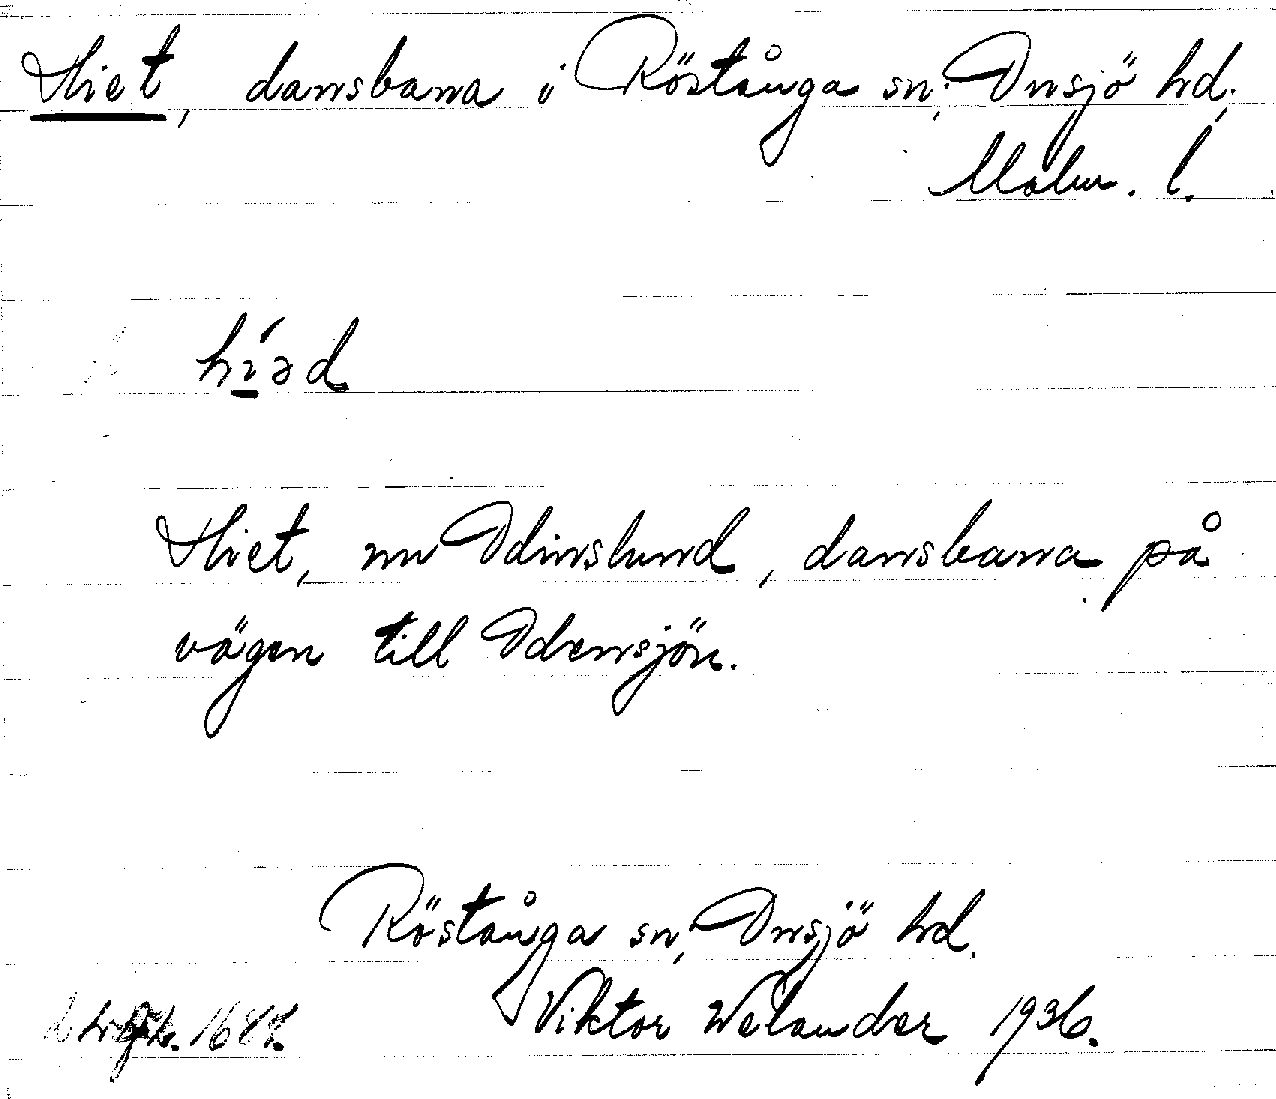 Hiet, dansbana i Röstånga sn, Onsjö hd,
Malm. l.
híəd
Hiet, nu Odinslund, dansbana på
vägen till Odensjön.
Röstånga sn, Onsjö hd.
Viktor Welander 1936.